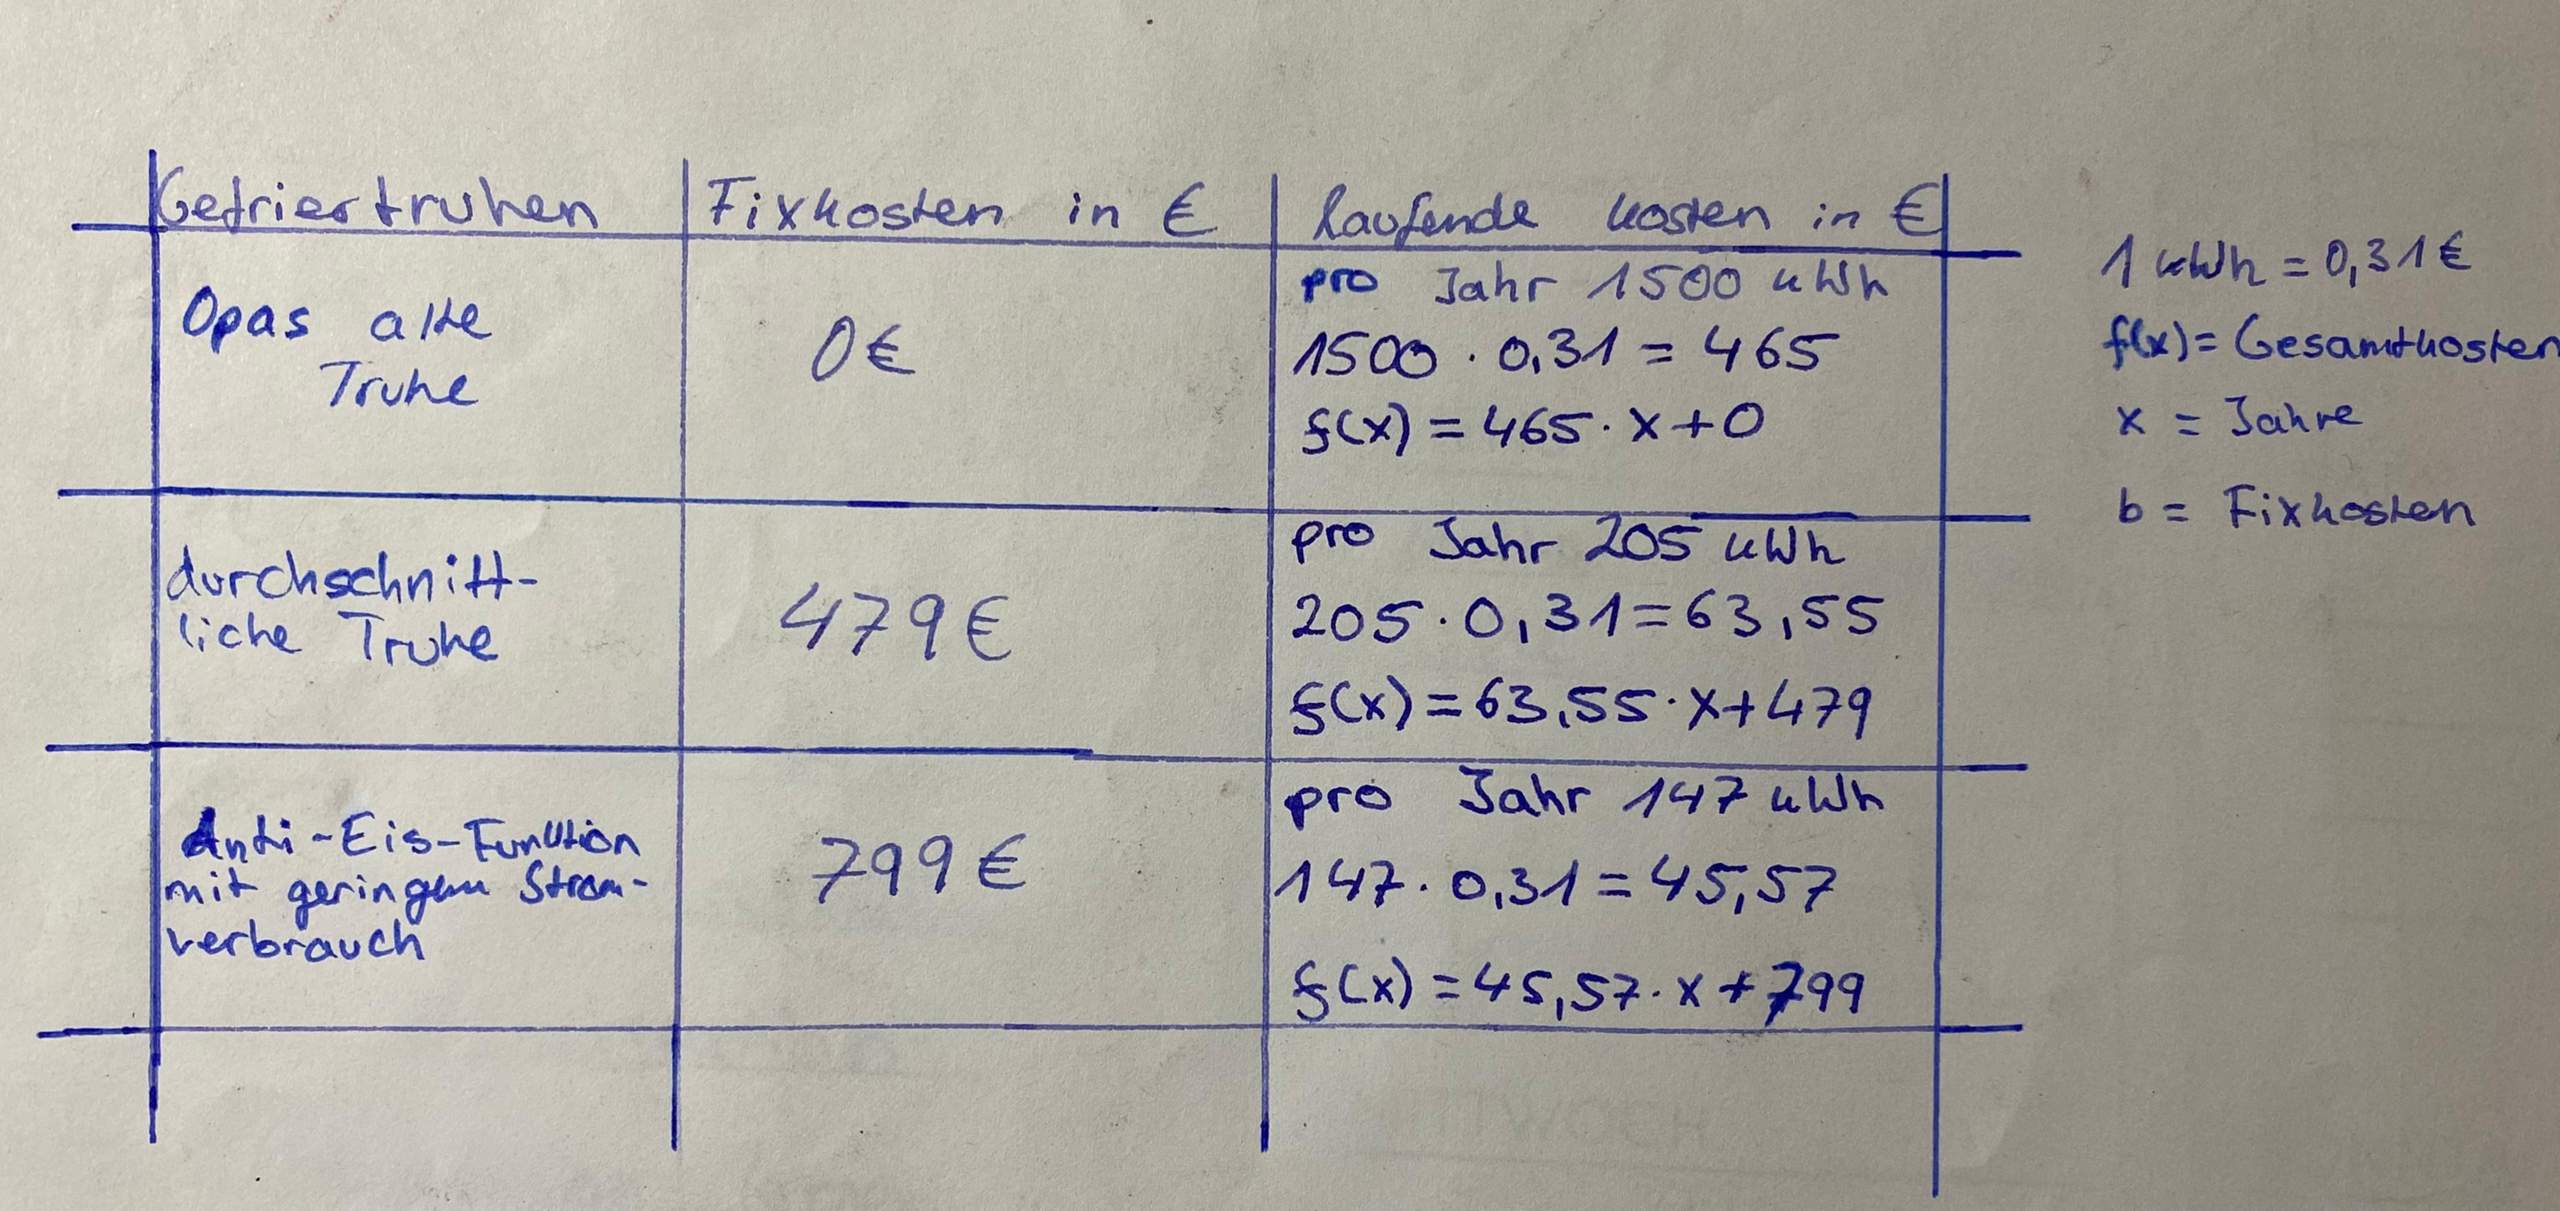 Gefriertruhen
Fixkosten in €
laufende kosten in €
Opas alte
Truhe
0€
pro Jahr 1500 kWh
1500 · 0,31 = 465
f(x) = 465 · x + 0
durchschnitt-
liche Truhe
479€
pro Jahr 205 kWh
205 · 0,31 = 63,55
f(x) = 63,55 · x + 479
Anti-Eis-Funktion
mit geringem Strom-
verbrauch
799€
pro Jahr 147 kWh
147 · 0,31 = 45,57
f(x) = 45,57 · x + 799
1 kWh = 0,31€
f(x) = Gesamtkosten
x = Jahre
b = Fixkosten